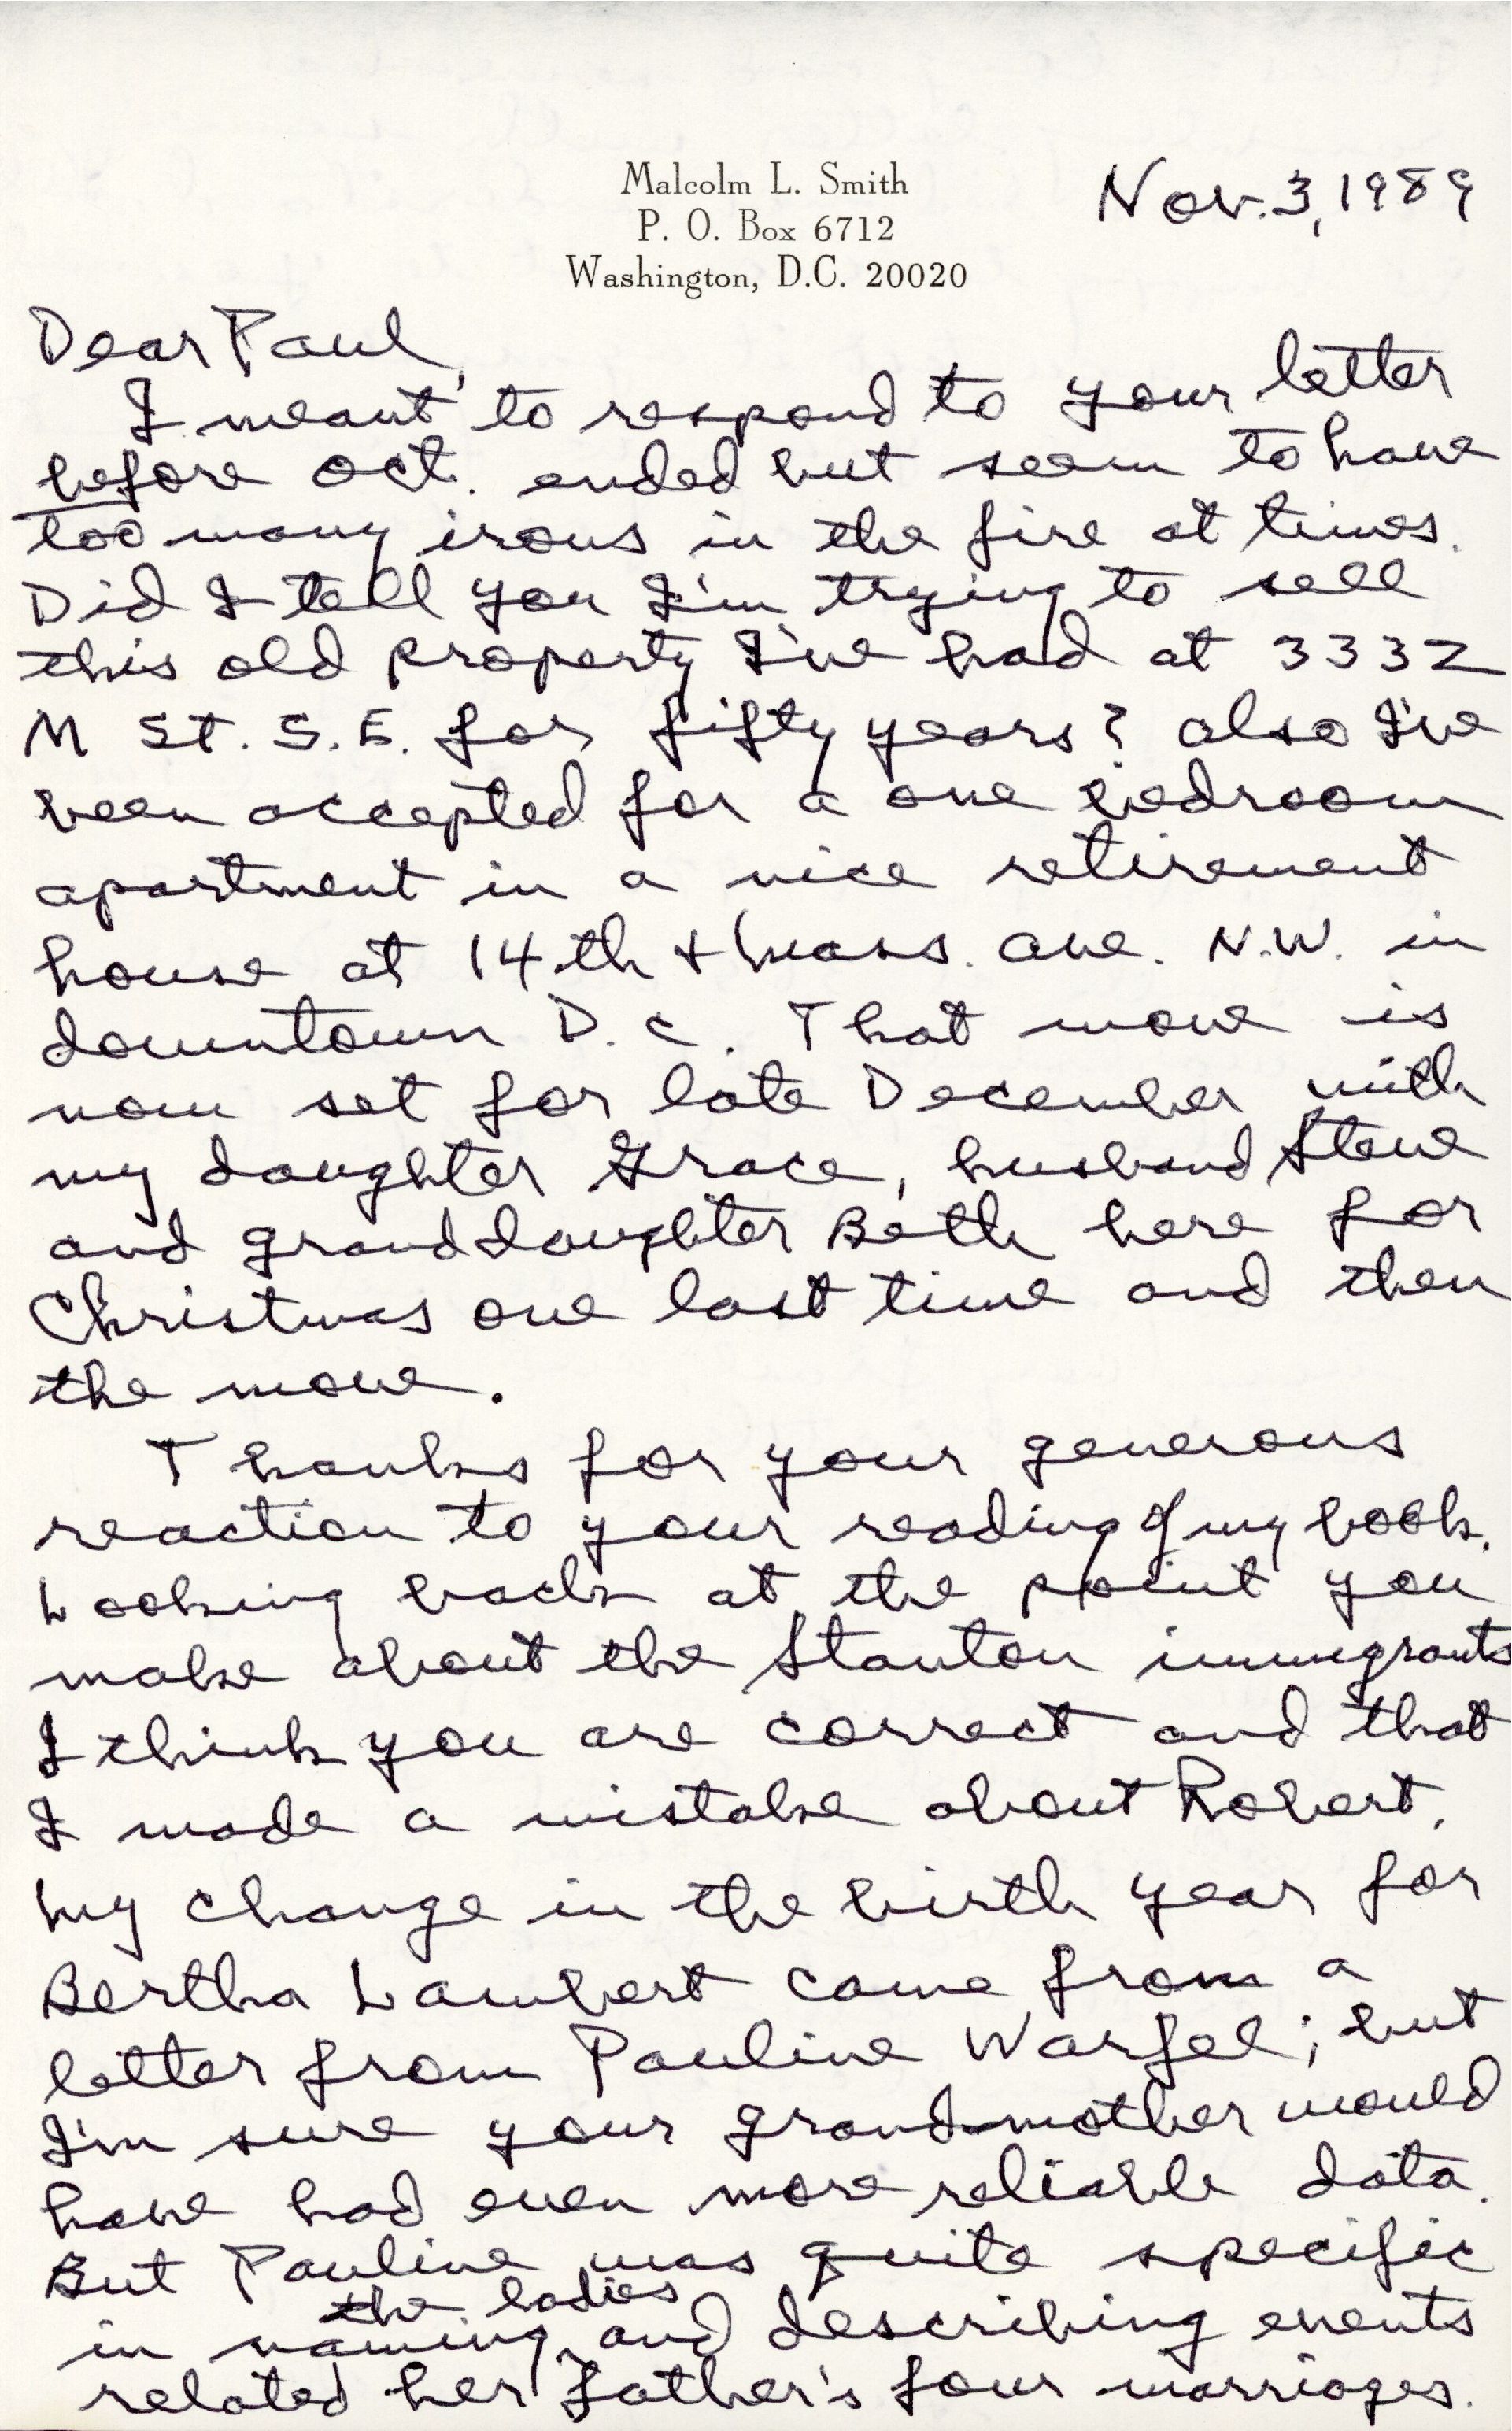 Malcolm L. Smith
P. O. Box 6712
Washington, D.C. 20020
Nov. 3, 1989
Dear Paul,
I meant to respond to your letter
before Oct. ended but seem to have
too many irons in the fire at times.
Did I tell you I'm trying to sell
this old property I've had at 3332
M St. S.E. for fifty years? Also I've
been accepted for a one bedroom
apartment in a nice retirement
house at 14th + Mass. Ave. N.W. in
downtown D.C. That move is
now set for late December with
my daughter Grace, husband Steve
and granddaughter Beth here for
Christmas one last time and then
the move.
Thanks for your generous
reaction to your reading of my book.
Looking back at the point you
make about the Stanton immigrants
I think you are correct and that
I made a mistake about Robert.
My change in the birth year for
Bertha Lambert came from a
letter from Pauline Warfel; but
I'm sure your grandmother would
have had even more reliable data.
But Pauline was quite specific
in naming the ladies and describing events
related her father's four marriages.